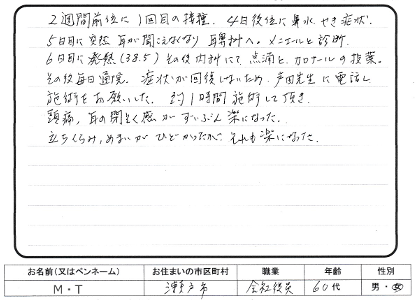 2週間前位に1回目の接種。4日後位に鼻水、せき症状。
5日目に突然耳が聞こえなくなり耳鼻科へ。メニエルと診断。
6日目に発熱(38.5)その後内科にて点滴と、カロナールの投薬。
その後毎日通院。症状が回復しないため、戸田先生に電話し
施術をお願いした。約1時間施術して頂き、
頭痛、耳の閉そく感がずいぶん楽になった。
立ちくらみ、めまいがひどかったが、それも楽になった。
お名前(又はペンネーム) お住まいの市区町村 職業 年齢 性別
M・T 瀬戸市 会社役員 60代 男・女